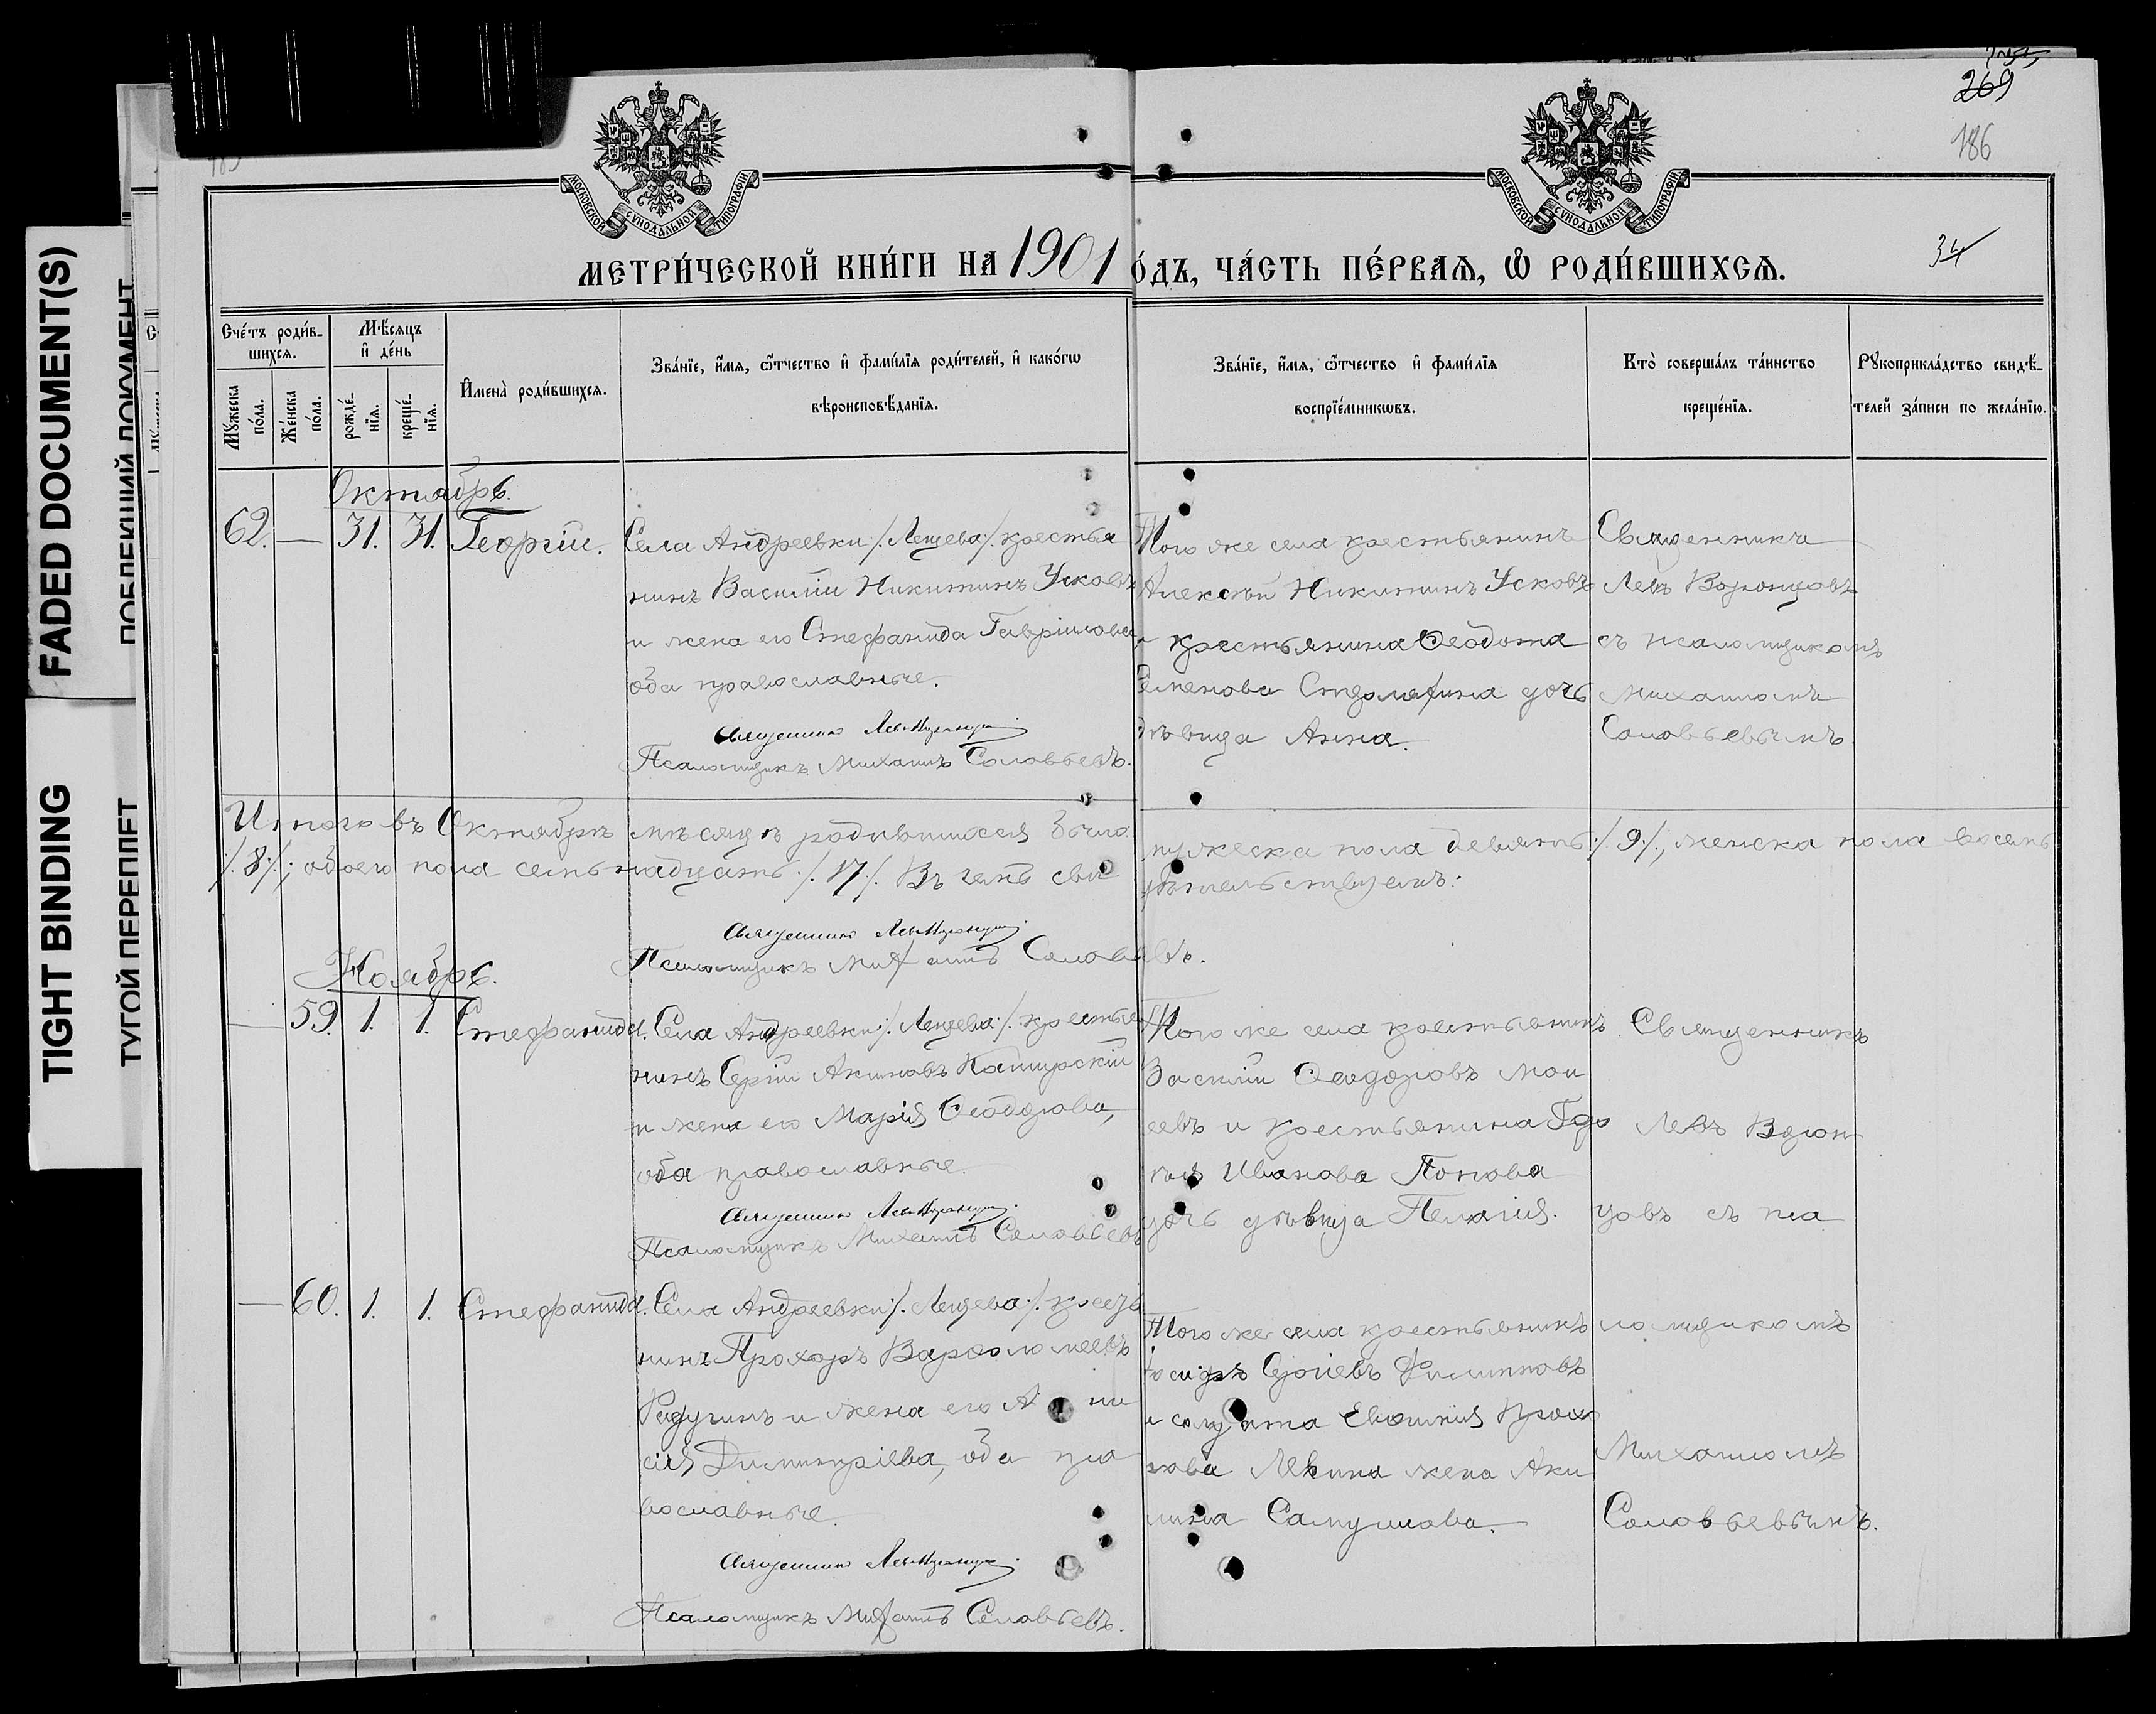 FADED DOCUMENT(S)
TIGHT BINDING
ТУГОЙ ПЕРЕПЛЕТ
269
186
34
МОСКОВСКОЙ СѴНОДАЛЬНОЙ ТИПОГРАФІИ
МОСКОВСКОЙ СѴНОДАЛЬНОЙ ТИПОГРАФІИ
МЕТРИ́ЧЕСКОЙ КНИ́ГИ НА 1901 О́ДЪ, ЧА́СТЬ ПЕ́РВАЯ, Ѡ РОДИ́ВШИХСЯ.
Сче́тъ роди́в-
шихся.
Мꙋжеска по́ла.
Же́нска по́ла.
Мѣ́сяцъ
и де́нь
рожде́-
нїя.
креще́-
нїя.
Имена̀ роди́вшихся.
Зва́нїе, и́мя, ѻ́тчество и фами́лїя роди́телей, и како́гѡ
вѣроисповѣ́данїя.
Зва́нїе, и́мя, ѻ́тчество и фами́лїя
воспрїе́мникѡвъ.
Кто̀ соверша́лъ та́инство
креще́нїя.
Рꙋкоприкла́дство свидѣ́-
телей за́писи по жела́нїю.
Октябрь.
62. — 31. 31. Георгій. Села Андреевки /. Лещева /. крестья
нинъ Василій Никитинъ Усковъ
и жена его Стефанида Гавріилова
оба православные.
Священникъ Левъ Воронцовъ
Псаломщикъ Михаилъ Соловьевъ.
Того же села крестьянинъ
Алексѣй Никитинъ Усковъ
и крестьянина Ѳеодота
Семенова дочь
дѣвица Анна.
Священникъ
Левъ Воронцовъ
съ псаломщикомъ
Михаиломъ
Соловьевымъ.
Итого въ Октябрѣ мѣсяцѣ родившихся было: мужеска пола девять /. 9 /., женска пола восемь
/. 8 /.; обоего пола семьнадцать /. 17 /. Въ чемъ свидѣтельствуемъ:
Священникъ Левъ Воронцовъ
Псаломщикъ Михаилъ Соловьевъ.
Ноябрь.
— 59. 1. 1. Стефанида. Села Андреевки /. Лещева /. крестья
нинъ Сергій Акимовъ Каширскій
и жена его Марія Ѳеодорова,
оба православные.
Священникъ Левъ Воронцовъ
Псаломщикъ Михаилъ Соловьевъ
Того же села крестьянинъ
Василій Ѳеодоровъ Мои
сеевъ и крестьянина
Иванова Попова
дочь дѣвица Пелагія.
Священникъ
Левъ Ворон
цовъ съ пса
— 60. 1. 1. Стефанида. Села Андреевки /. Лещева /. крест
нинъ Прохоръ Варѳоломеевъ
Радугинъ и жена его
сія Димитріева, оба пра
вославные.
Священникъ Левъ Воронцовъ
Псаломщикъ Михаилъ Соловьевъ.
Того же села крестьянинъ
Сергіевъ Филипповъ
и солдата Евѳимія
жена Аки
лина Самуилова.
ломщикомъ
Михаиломъ
Соловьевымъ.